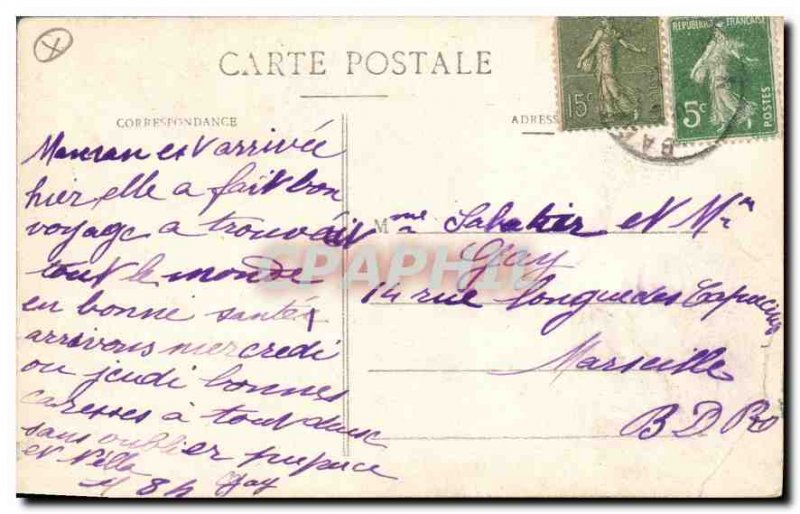 CARTE POSTALE
CORRESPONDANCE
ADRESS
15c
REPUBLIQUE FRANÇAISE
5c
POSTES
Maman est arrivée
hier, elle a fait bon
voyage a trouvait
tout le monde
en bonne santé
arrivons mercredi
ou jeudi bonnes
caresses à tout deux
sans oublier
et
Gay
Mme Sabatier et Mr
Gay
14 rue Longue des Capucins
Marseille
B D Ro
CPAPHIL